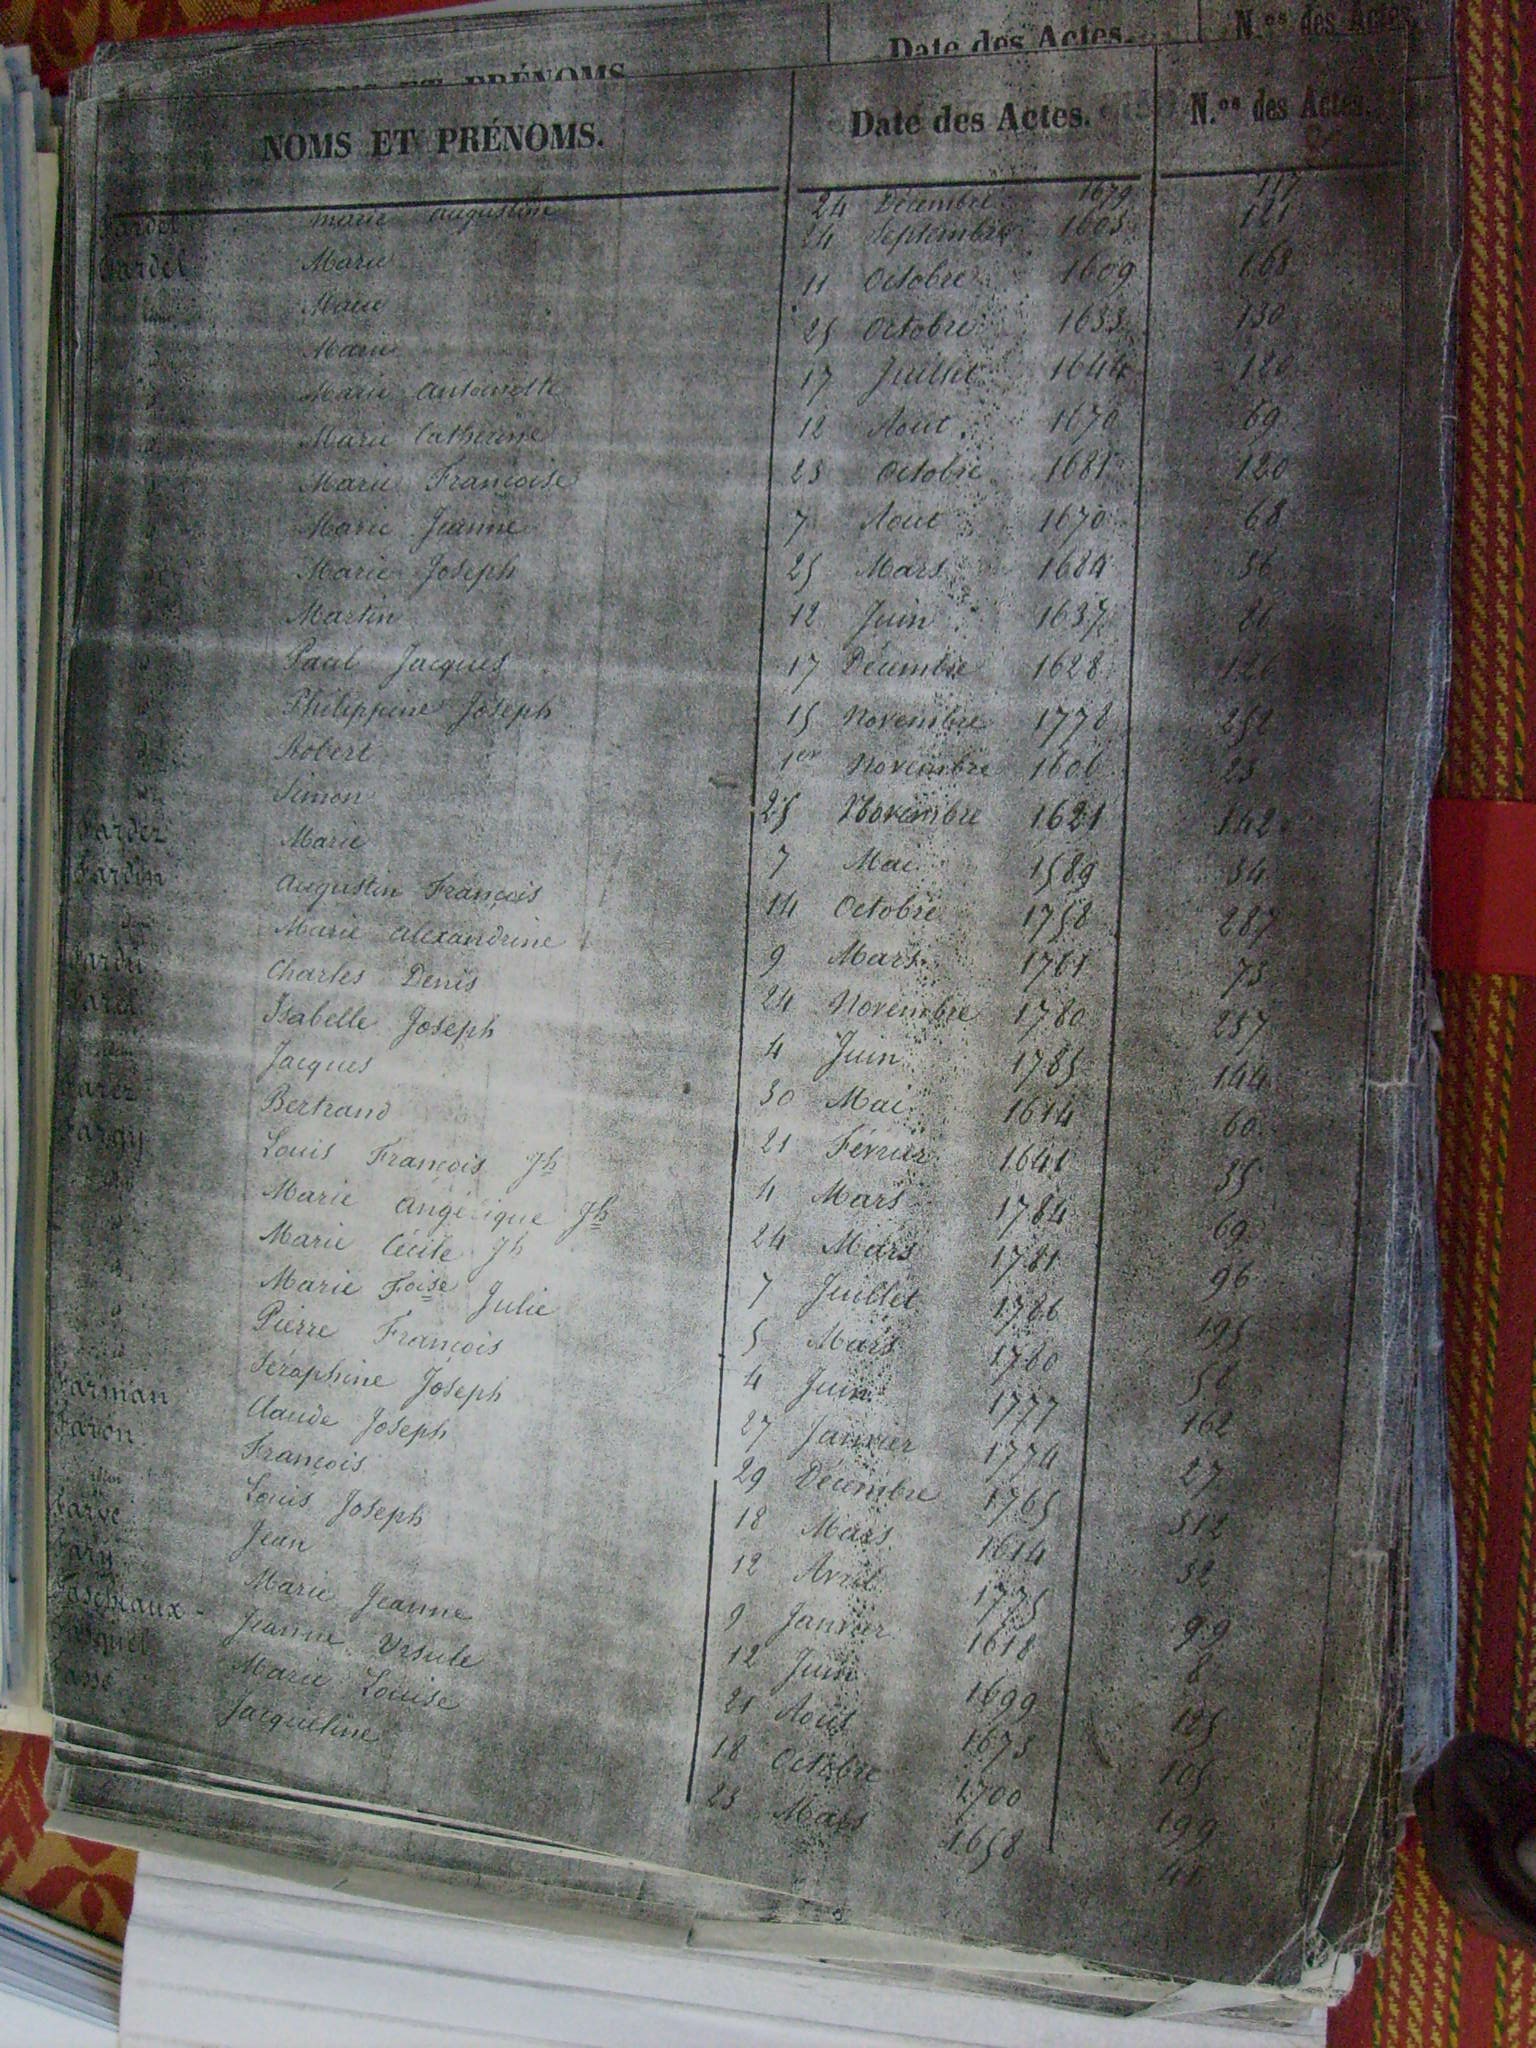 Date des Actes. N.os des Actes.
ET PRÉNOMS
NOMS ET PRÉNOMS. Date des Actes. N.os des Actes.
Fardel Marie Augustine 24 Décembre 1679 117
Fardel Marie 24 Septembre 1605 121
Marie 11 Octobre 1609 168
Marie 25 Octobre 1633 130
Marie Antoinette 17 Juillet 1644 120
Marie Catherine 12 Aout 1670 69
Marie Françoise 23 Octobre 1681 120
Marie Jeanne 7 Aout 1670 68
Marie Joseph 25 Mars 1684 36
Martin 12 Juin 1637 86
Paul Jacques 17 Décembre 1628 126
Philippine Joseph 15 Novembre 1778 252
Robert 1er Novembre 1606 23
Simon 25 Novembre 1621 142
Fardez Marie 7 Mai 1589 34
Fardin Augustin François 14 Octobre 1758 287
Marie Alexandrine 9 Mars 1761 73
Fardu Charles Denis 24 Novembre 1780 257
Farel Isabelle Joseph 4 Juin 1785 144
Jacques 30 Mai 1614 60
Farez Bertrand 21 Février 1641 35
Fargy Louis François Jh 4 Mars 1784 69
Marie Angélique Jh 24 Mars 1781 96
Marie Cécile Jh 7 Juillet 1786 195
Marie Foise Julie 5 Mars 1780 58
Pierre François 4 Juin 1777 162
Séraphine Joseph 27 Janvier 1774 27
Farman Claude Joseph 29 Décembre 1765 312
Faron François 18 Mars 1614 32
Louis Joseph 12 Avril 1775 99
Farve Jean 9 Janvier 1618 8
Fary Marie Jeanne 12 Juin 1699 125
Faschiaux Jeanne Ursule 21 Aout 1673 105
Fasquel Marie Louise 18 Octobre 1700 199
Fasse Jacqueline 23 Mars 1658 41